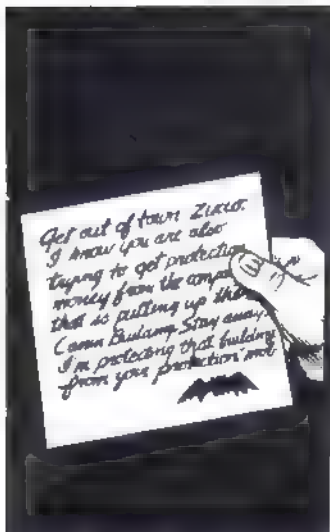 Get out of town Zucco.
I know you are also
trying to get protection
money from the company
that is putting up the
Canin Building. Stay away.
I'm protecting that building
from your protection mob